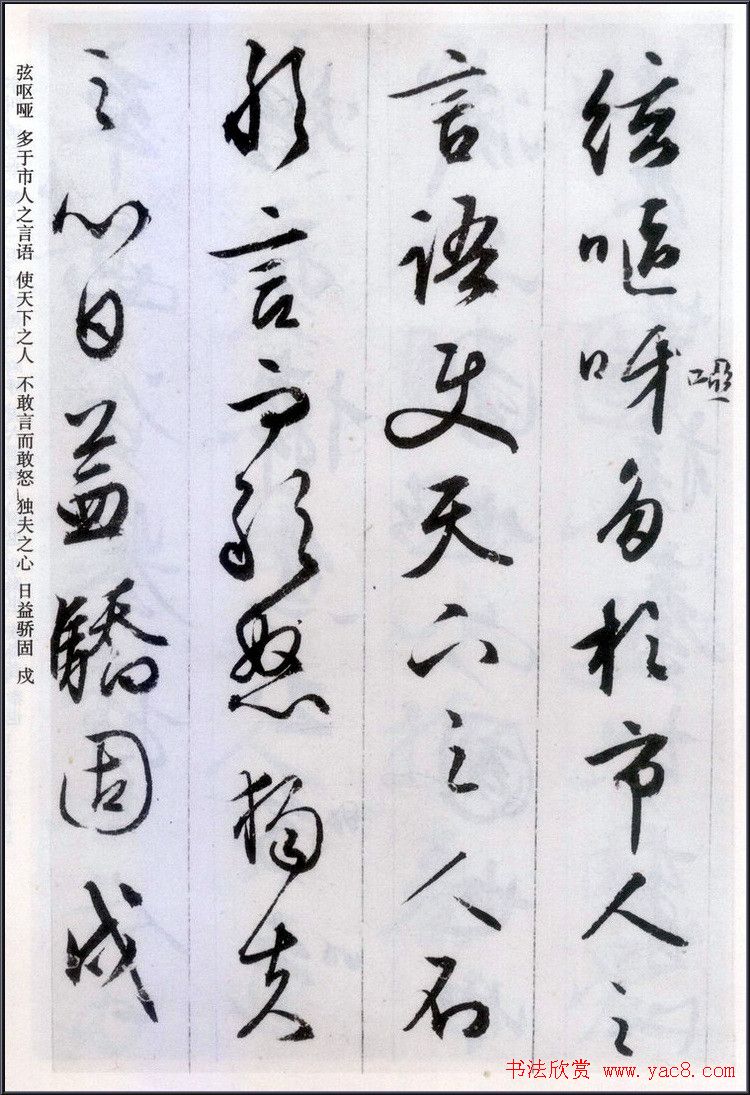 絃嘔呀多於市人之
哑
言語使天下之人不
敢言而敢怒獨夫
之心日益驕固戍
弦呕哑 多于市人之言语 使天下之人 不敢言而敢怒 独夫之心 日益骄固 戍
书法欣赏 www.yac8.com